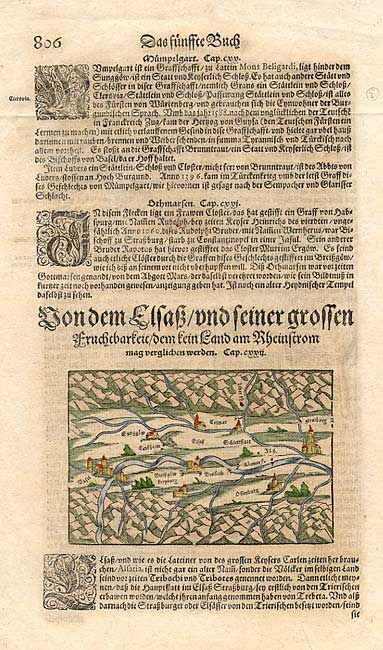 806 Das fünffte Buch
Mümpelgart. Cap. cxx.
Mümpelgart ist ein Graffschafft / zu Latein Mons Beligardi, ligt hinder dem
Sunggöw / ist ein Statt vnd Keyserlich Schloß. Es hat auch andere Stätt vnd
Schlösser in diser Graffschafft / nemlich Grans ein Stättlein vnd Schloß /
Clerovia.
Clerovia / Stättlein vnd Schloß / Passewang Stättlein vnd Schloß / ist alles
des Fürsten von Würtenberg / vnd gebrauchen sich die Eynwohner der Bur-
gundischen Sprach. Nach das jahr 1588. nach dem vnglücklichen der Teutsch
en in Franckreich Zug / kam der Hertzog von Guysa (den Teutschen Fürsten ein
Lermen zu machen) mit etlich verlauffenem Gesind in dise Graffschafft /
darinnen mit rauben / brennen vnd Weiber schenden / in summa Tyrannisch vnd Türckisch nach
allem vorthel. Es stoßt an die Graffschafft Brunnentraut / ein Statt von Keyserlich Schloß / ist
des Bischoffs von Basel / da er Hoff haltet.
Item Luders ein Stättlein / Schloß vnd Closter / nicht ferr von Brunnentraut / ist des Abbts von
Luders / stossen an Hoch Burgund. Anno 1396. kam im Türckenkrieg vmb der letst Graff di
ses Geschlechtes von Mümpelgart / wie hievornen ist gesagt nach der Sempacher vnd Glariser
Schlacht.
Othmarsen. Cap. cxxj.
In disem Flecken ligt ein Frawen Closter, das hat gestifft ein Graff von Hab-
spurg / mit Nammen Rudolph / bey zeiten Keyser Heinrichs des vierdten / vnge-
fährlich Anno 1060. dises Rudolphi Bruder / mit Nammen Wernherus / war Bi-
schoff zu Straßburg / starb zu Constantinopel in einer Insul. Sein anderer
Bruder Ratotus hat hievor gestifftet das Closter Murin im Ergöw. Es seind
auch etliche Clöster durch die Graffen dises Geschlechts gestifftet im Breißgöw /
wie ich deß an seinem ort nicht vberhupffen will. Diß Othmarsen war vor zeiten
Gottmarsen genandt / von dem Abgott Mars / der daselbst verehret worden / wie sein Bildnuß in
kurtzer zeit noch vorhanden gewesen / anzeigung geben hat. Ist noch ein alter Heydnischer Tempel
daselbst zu sehen.
Von dem Elsaß / vnd seiner grossen
Fruchtbarkeit / dem kein Land am Rheinstrom
mag verglichen werden. Cap. cxxij.
Sunggöw
Colmar
Elsaß
Schletstatt
Ensißheim
Basel
Brißgöw
Freyburg
Brisach
Ill
Offenburg
Elsaß / vnd wie es die Lateiner von des grossen Keysers Carlen zeiten her brau-
chen / Alsatia, ist nicht gar ein alter Nam / sonder die Völcker im selbigen Land
seind vor zeiten Tribochi vnd Tribotes genennet worden. Dann etliche mey-
nen / daß die Hauptstatt im Elsaß Straßburg / sey erstlich von den Trierischen
erbawen worden / welche ihren anfang genommen haben von Trebeta. Vnd alß
darnach die Straßburger ol Elsässer von den Trierischen besetzt worden / seind
sie